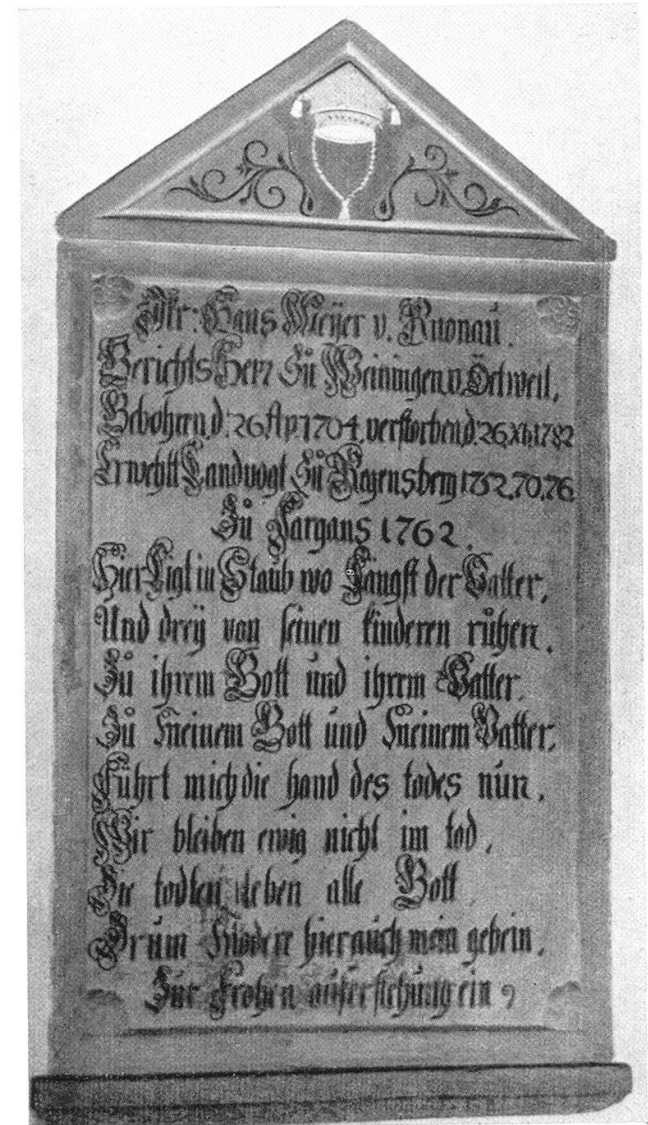 Jkr: Hans Meÿer v. Knonaü.
Gerichts Herr Zů Weiningen.v.Öetweil,
Gebohren.d: 26.Ap.1704.verstorben.d.26.Xb.1782
Erwehlt Landvogt Zů Regensberg 1752.70.76.
Zů Sargans 1762.
Hier Ligt in Staüb wo Langst der Vatter,
Und dreÿ von seinen kinderen růhen.
Zů ihrem Gott und ihrem Vatter.
Zů meinem Gott ünd meinem Vatter.
Führt mich die hand des todes nün.
Wir bleiben ewig nicht im tod,
Die todten leben alle Gott
Drüm modere hier aüch mein gebein.
Zür Frohen aüferstehüng ein